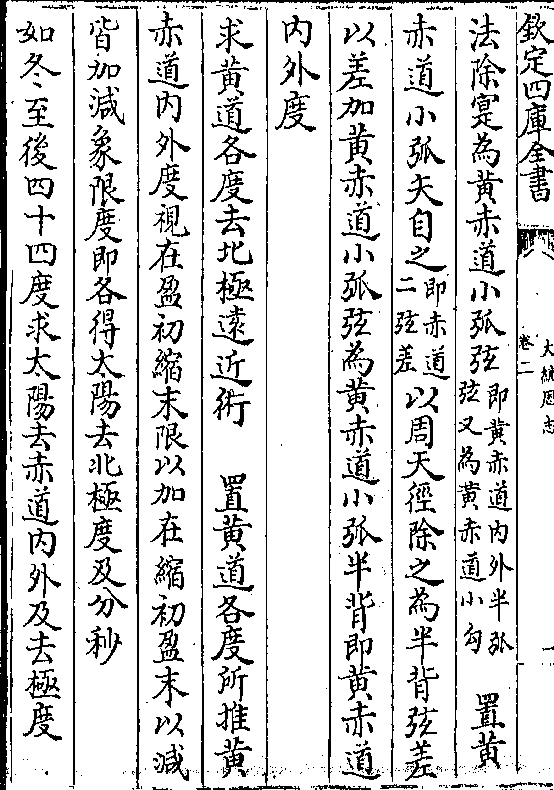 欽定四庫全書
大統厯志
卷二
一
法除寔為黄赤道小弧弦即黄赤道内外半弧弦又為黄赤道小勾 置黄
赤道小弧矢自之即赤道二弦差以周天徑除之為半背弦差
以差加黄赤道小弧弦為黄赤道小弧半背即黄赤道
内外度
求黄道各度去北極遠近術 置黄道各度所推黄
赤道内外度視在盈初縮末限以加在縮初盈末以減
皆加減象限度即各得太陽去北極度及分秒
如冬至後四十四度求太陽去赤道内外及去極度